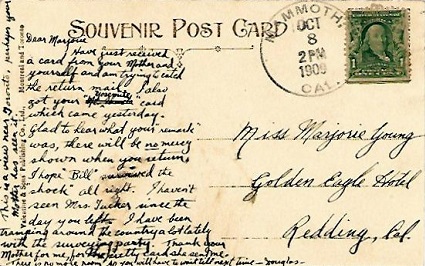 SOUVENIR POST CARD
MAMMOTH
OCT
8
2 PM
1909
CAL.
1
Dear Marjorie
Have just received
a card from your Mother and
yourself and am trying to catch
the return mail. I also
got your "Yosemite" card
which came yesterday.
Glad to hear what your remark
was, there will be no mercy
shown when you return.
I hope "Bill" survived the
shock all right. I haven't
seen Mrs. Tucker since the
day you left. I have been
tramping around the country a lot lately
with the surveying party. Thank your
Mother for me, for the pretty card she sent me.
This is no more room so you will have to wait till next time - Douglas -
Miss Marjorie Young
Golden Eagle Hotel
Redding, Cal.
This is a view near Toronto, perhaps your
Mother has seen it.
Publishing Co., Ltd., Montreal and Toronto